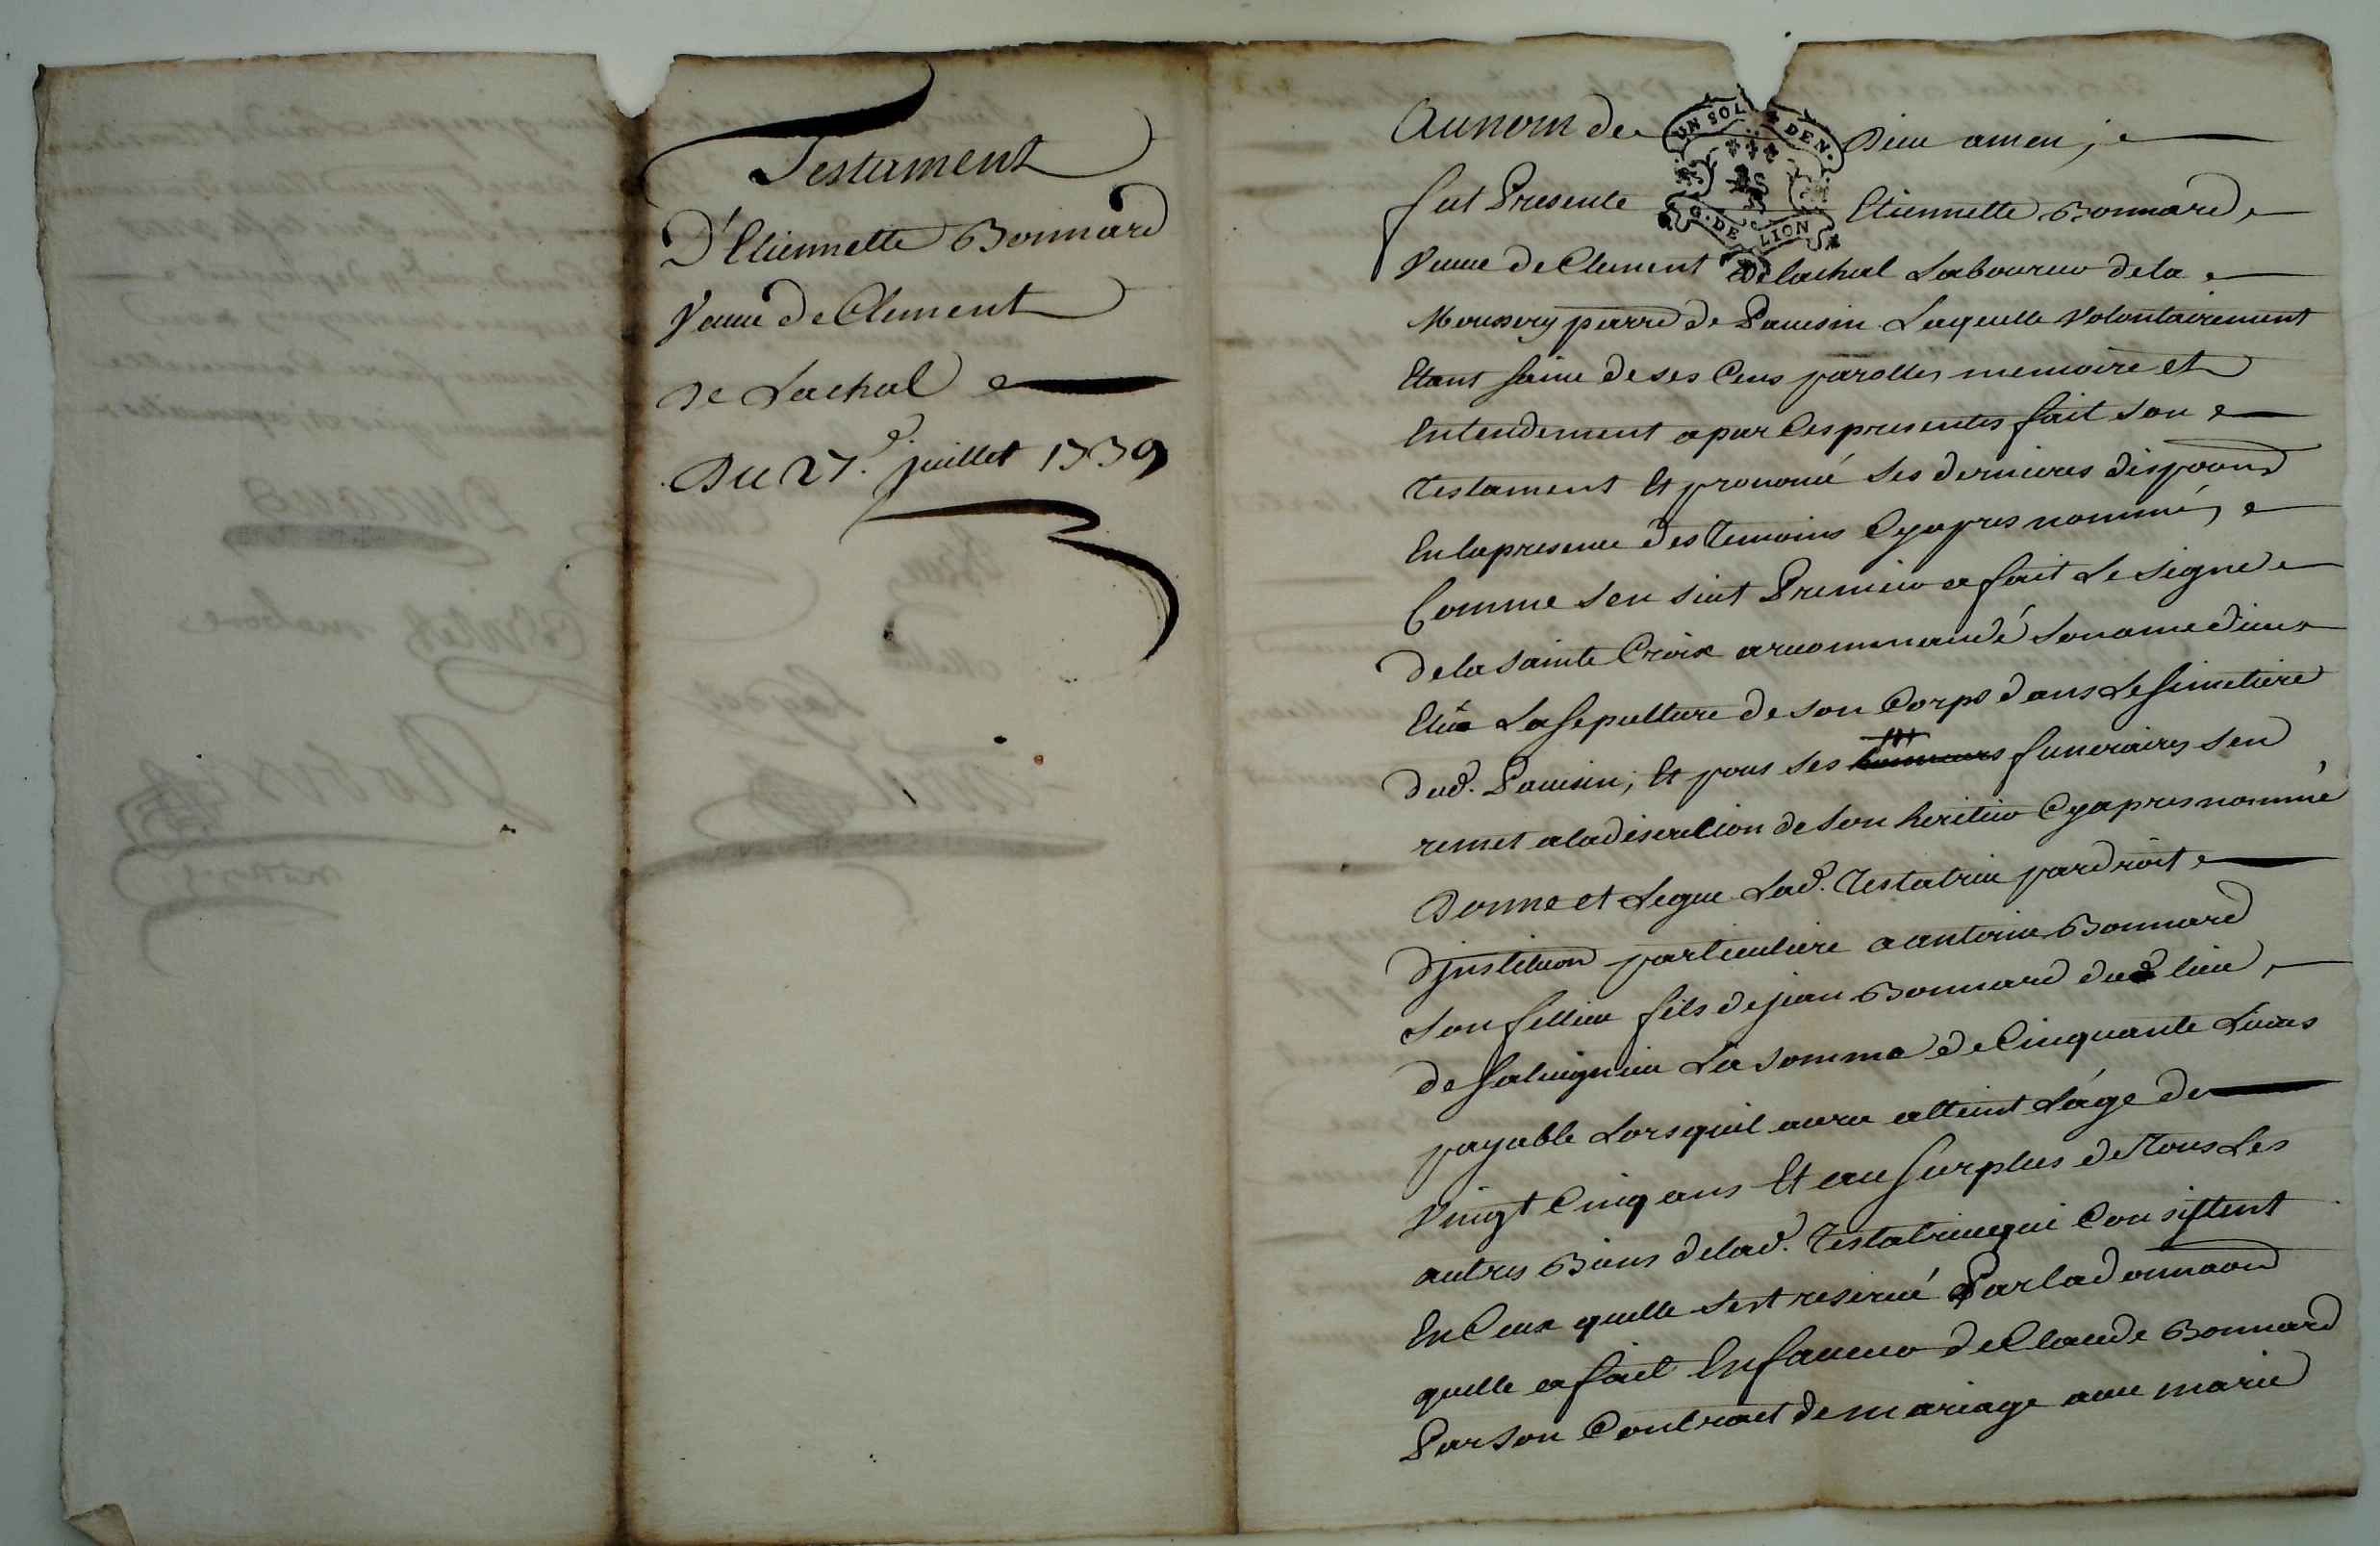 Testament
D'Etiennette Bonnard
Veuve de Clement
de Lachal
Du 27e. juillet 1739
Au nom de Dieu amen;
UN SOL DEN.
G. DE LION
fut Presente Etiennette Bonnard
Veuve de Clement Delachal Laboureur de la
parre de Pauisin Laquelle Volontairement
Etant saine de ses Cens parolles memoire et
Entendement a par Ces presentes fait son
testament Et prononcé ses dernieres disposond
En la presence des temoins Cyapres nommés
Comme sen suit Premier a fait Le signe
de la sainte Croix a recommandé son ame dieu
Elûe La sepulture de son Corps dans Le simetiere
dud. Pauisin; Et pour ses funeraires sen
remet a la discretion de son heritier Cyapres nommé
Donne et Legue Lad. testatrice par droit
d'jnstituond particuliere a antoine Bonnard
son fillieu fils de jean Bonnard dud. lieu
de La somme de Cinquante Livres
payable Lors quil aura atteint L'áge de
Vingt Cinq ans Et au surplus de tous Les
autres Biens de lad. testatrice qui Consistent
En Ceux quelle sest reservé Par la donnaond
quelle a fait En faveur de Claude Bonnard
Par son Contract de mariage avec marie